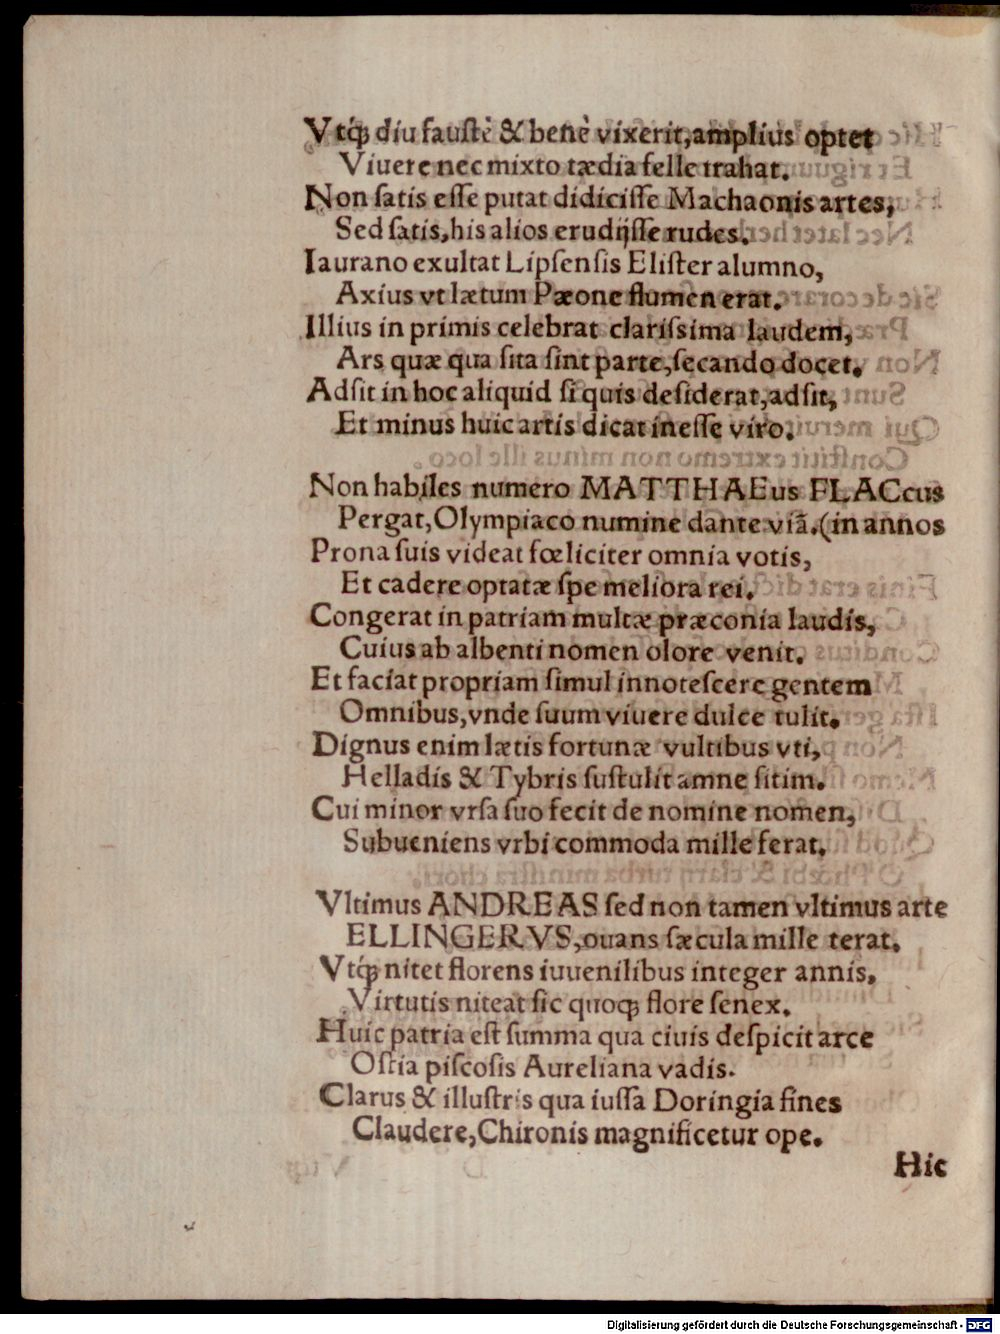 Vtq́ꝫ diu faustè & benè vixerit,amplius optet
Viuere nec mixto tædia felle trahat.
Non ſatis eſſe putat didiciſſe Machaonis artes,
Sed ſatis,his alios erudijſſe rudes.
Iaurano exultat Lipſenſis Eliſter alumno,
Axius vt lætum Pæone flumen erat.
Illius in primis celebrat clariſsima laudem,
Ars quæ qua ſita ſint parte,ſecando docet.
Adſit in hoc aliquid ſi quis deſiderat,adſit,
Et minus huic artis dicat ineſſe viro.
Non habiles numero MATTHAEus FLACcus
Pergat,Olympiaco numine dante viã.(in annos
Prona ſuis videat fœliciter omnia votis,
Et cadere optatæ ſpe meliora rei.
Congerat in patriam multæ præconia laudis,
Cuius ab albenti nomen olore venit.
Et faciat propriam ſimul innoteſcere gentem
Omnibus,vnde ſuum viuere dulce tulit.
Dignus enim lætis fortunæ vultibus vti,
Helladis & Tybris ſuſtulit amne ſitim.
Cui minor vrſa ſuo fecit de nomine nomen,
Subueniens vrbi commoda mille ferat.
Vltimus ANDREAS ſed non tamen vltimus arte
ELLINGERVS,ouans ſæcula mille terat.
Vtq́ꝫ nitet florens iuuenilibus integer annis,
Virtutis niteat ſic quoqꝫ flore ſenex.
Huic patria eſt ſumma qua ciuis deſpicit arce
Oſtia piſcoſis Aureliana vadis.
Clarus & illuſtris qua iuſſa Doringia fines
Claudere,Chironis magnificetur ope.
Hic
Digitalisierung gefördert durch die Deutsche Forschungsgemeinschaft - DFG